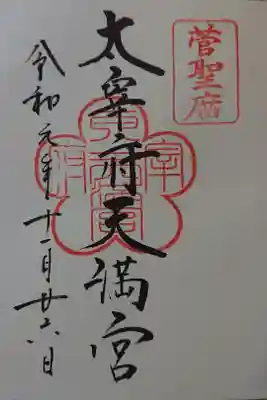 菅聖庿
太宰府天満宮
令和元年十一月廿六日